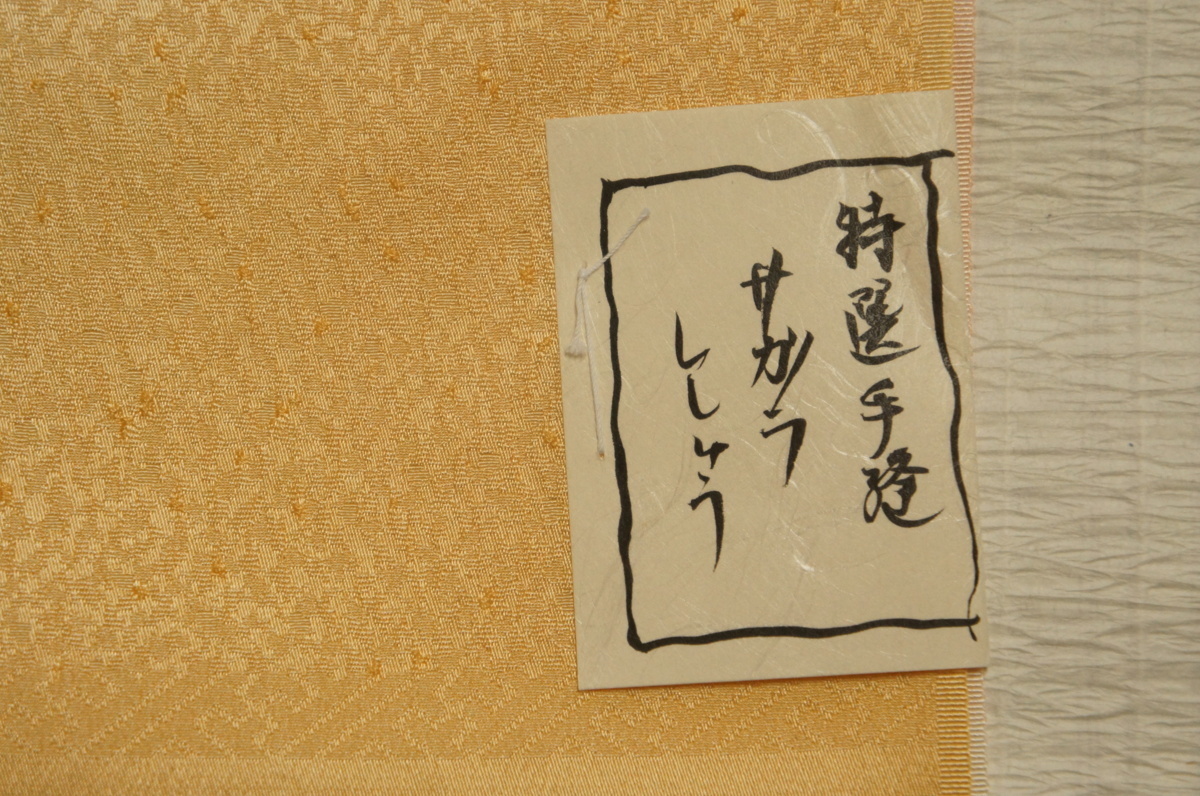 特選手縫
サガラ
ししゅう